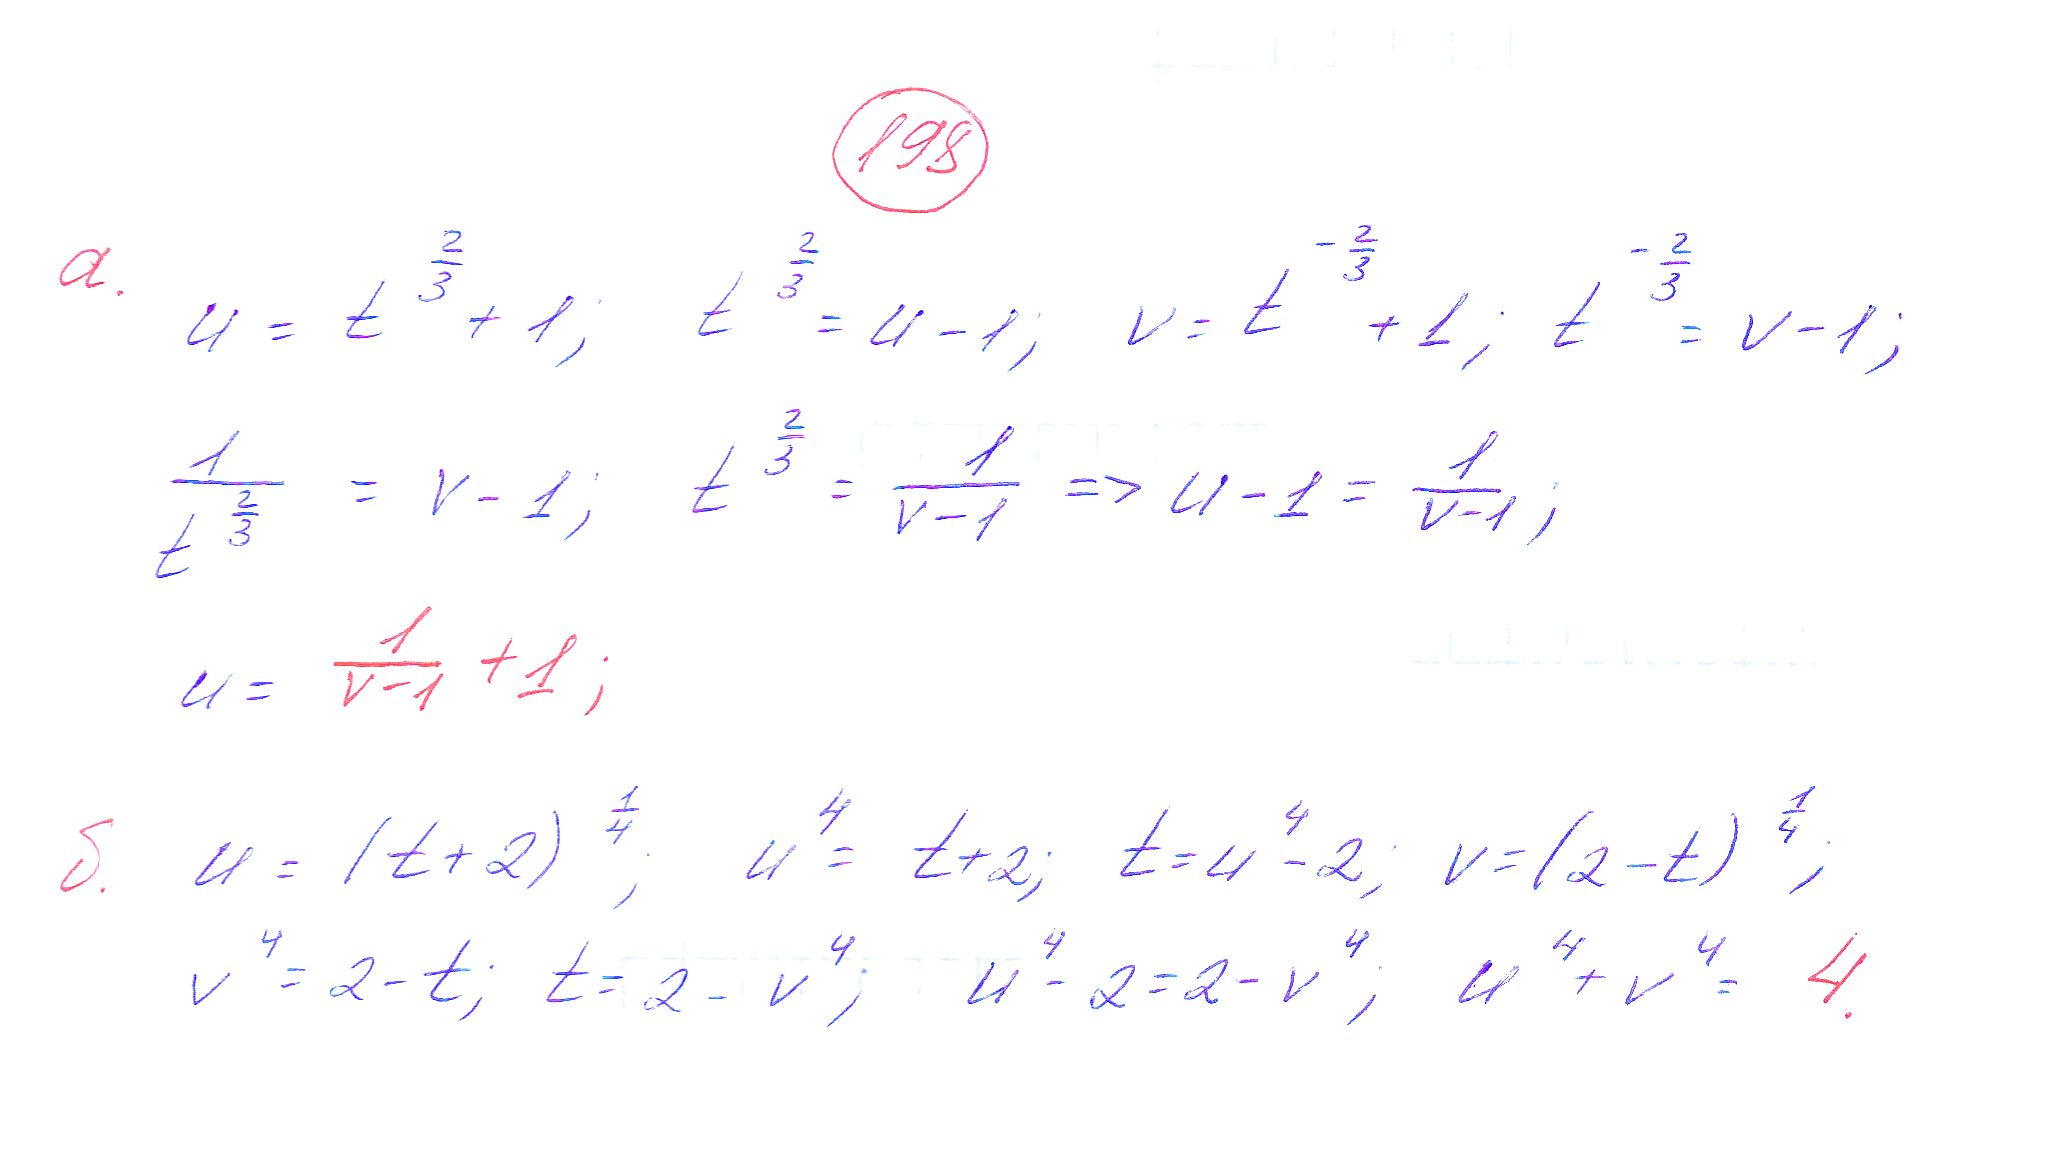 198
а. u = t^(2/3) + 1; t^(2/3) = u - 1; v = t^(-2/3) + 1; t^(-2/3) = v - 1;
1/t^(2/3) = v - 1; t^(2/3) = 1/(v-1) => u - 1 = 1/(v-1);
u = 1/(v-1) + 1;
б. u = (t+2)^(1/4); u^4 = t+2; t = u^4 - 2; v = (2-t)^(1/4);
v^4 = 2 - t; t = 2 - v^4; u^4 - 2 = 2 - v^4; u^4 + v^4 = 4.